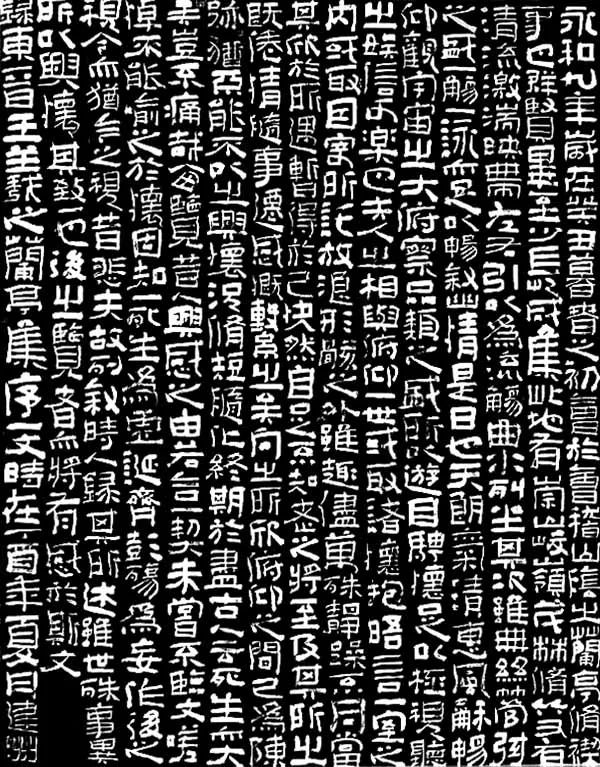 永和九年歲在癸丑暮春之初會於會稽山陰之蘭亭脩禊
事也群賢畢至少長咸集此地有崇山峻嶺茂林脩竹又有
清流激湍映帶左右引以為流觴曲水列坐其次雖無絲竹管弦
之盛一觴一詠亦足以暢敘幽情是日也天朗氣清惠風和暢
仰觀宇宙之大俯察品類之盛所以遊目騁懷足以極視聽
之娛信可樂也夫人之相與俯仰一世或取諸懷抱晤言一室之
內或取因寄所託放浪形骸之外雖趣萬殊靜躁不同當
其欣於所遇暫得於己快然自足不知老之將至及其所之
既倦情隨事遷感慨繫之矣向之所欣俯仰之間已為陳
跡猶不能不以之興懷況脩短隨化終期於盡古人云死生亦大
矣豈不痛哉每覽昔人興感之由若合一契未嘗不臨文嗟
悼不能喻之於懷固知一死生為虛誕齊彭殤為妄作後之
視今亦猶今之視昔悲夫故列敘時人錄其所述雖世殊事異
所以興懷其致一也後之覽者亦將有感於斯文
錄東晉王羲之蘭亭集序一文時在丁酉年夏月建州